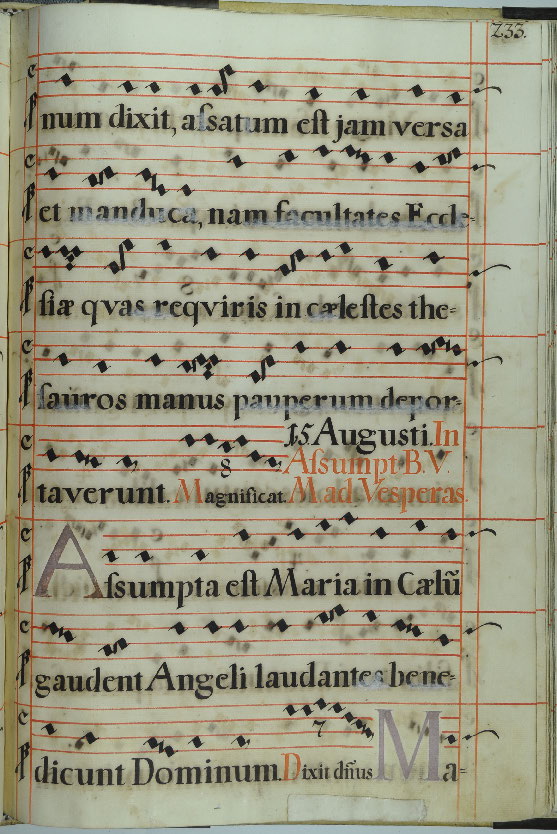 233.
num dixit, assatum est jam versa
et manduca, nam facultates Eccle=
siæ qvas reqviris in cælestes the=
sauros manus pauperum depor=
15 Augusti. In
8 Assumpt B.V.
taverunt. Magnificat. M ad Vesperas.
Assumpta est Maria in Cælū
gaudent Angeli laudantes bene=
7
dicunt Dominum. Dixit dñus Ma=